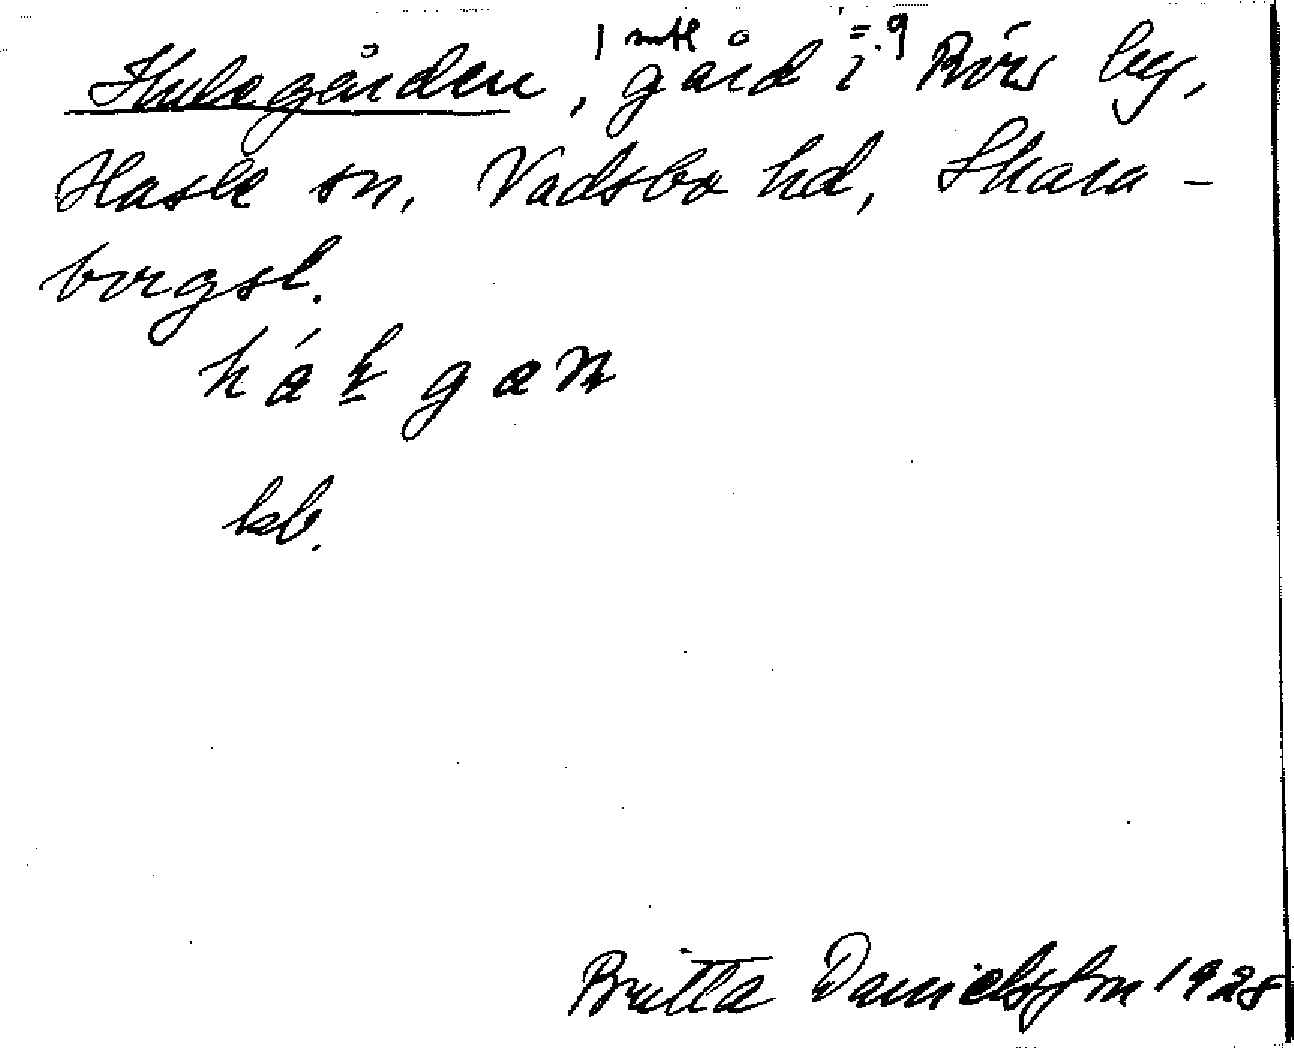 Hulegården, 1 mtl gård i Rör by,
Hasle sn, Vadsbo hd, Skara-
borgsl.
kb.
Britta Danielsson 1928